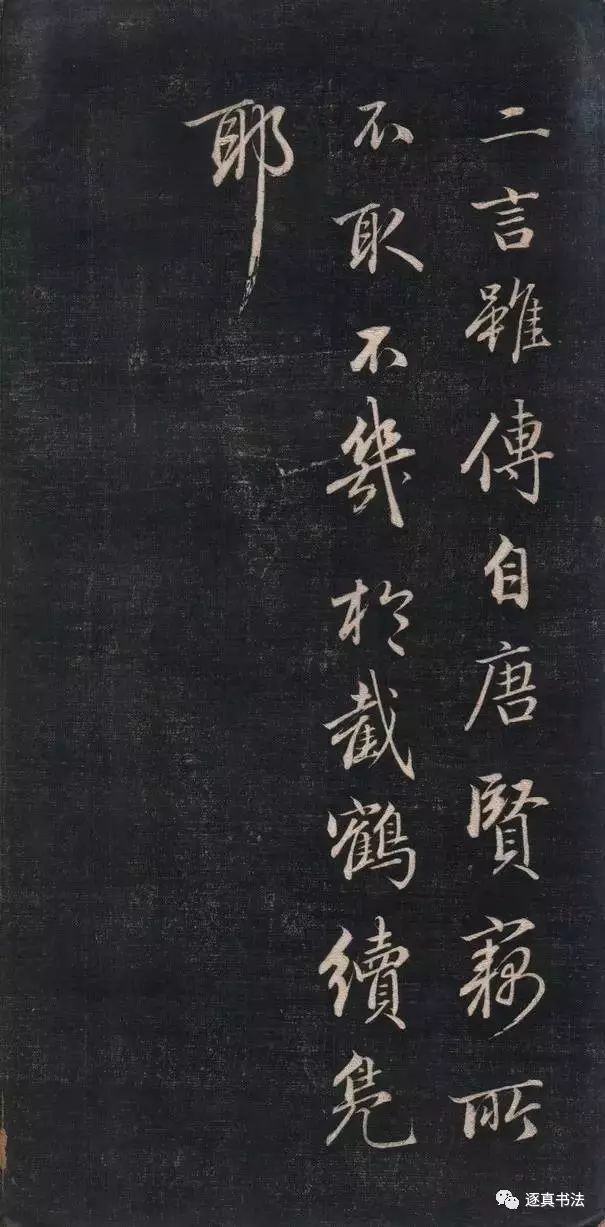 二言雖傳自唐賢竊所
不取不幾於截鶴續鳧
耶
逐真书法